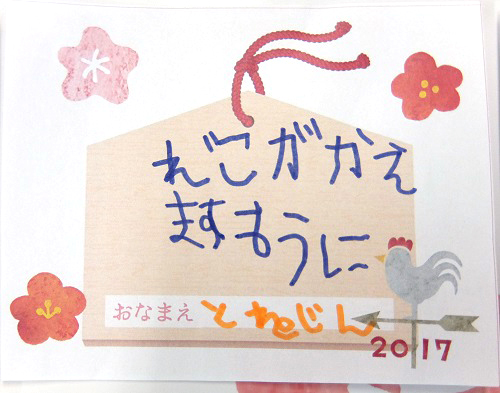 れごがかえ
ますもうに
おなまえ とねじん
2017